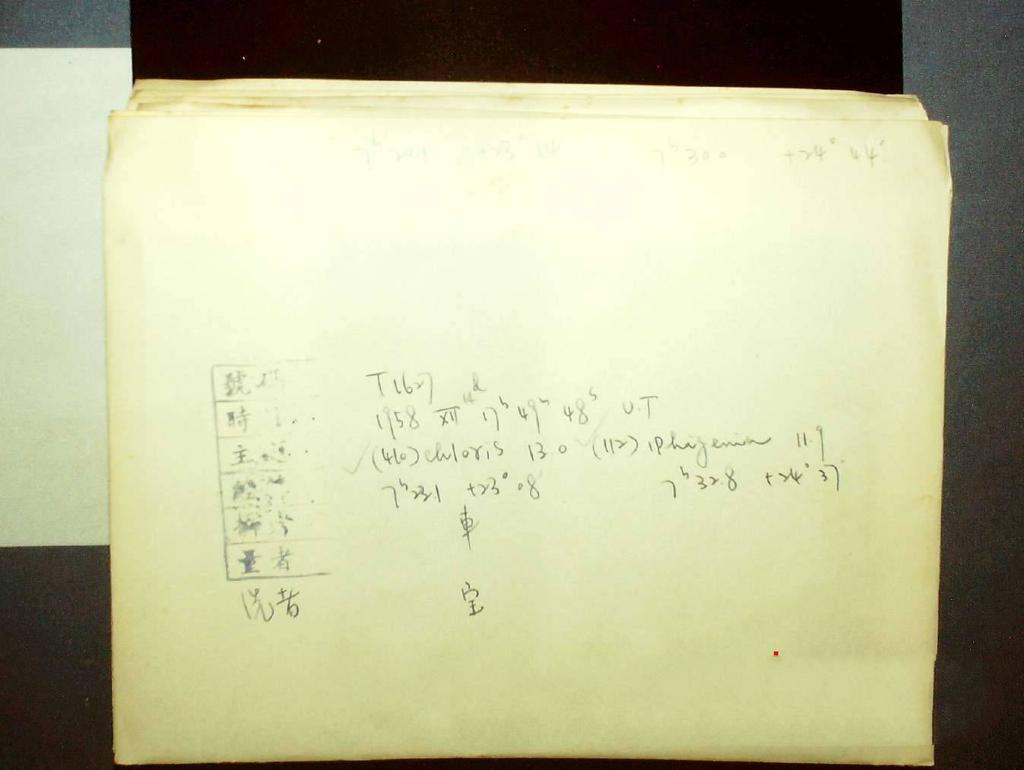 7ʰ 30 0 +24° 44'
號碼 T1627
時 1958 XII 11ᵈ 17ʰ 49ᵐ 48ˢ U.T
主 (410) chloris 13.0 (112) iphigenia 11.9
7ʰ 23.1 +23° 08' 7ʰ 32.8 +24° 37'
車
量者
洗者 宝